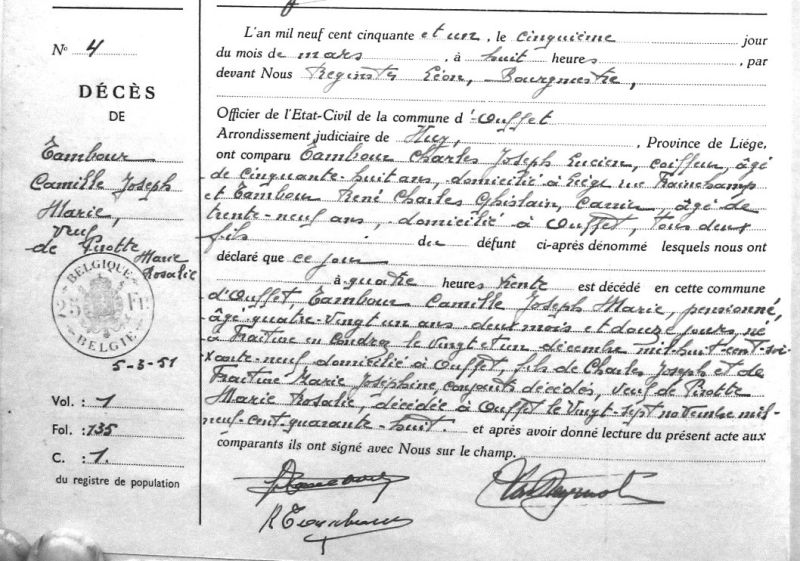 N° 4
DÉCÈS
DE
Tambour
Camille Joseph
Marie,
veuf
de Pirotte Marie
Rosalie
BELGIQUE
25 Fr
BELGIË
5-3-51
Vol. : 1
Fol. : 135
C. : 1.
du registre de population
L'an mil neuf cent cinquante et un, le cinquième jour
du mois de mars, à huit heures, par
devant Nous Reginster Léon, Bourgmestre,
Officier de l'Etat-Civil de la commune d'Ouffet
Arrondissement judiciaire de Huy, Province de Liége,
ont comparu Tambour Charles Joseph Lucien, coiffeur, âgé
de cinquante-huit ans, domicilié à Liége rue
et Tambour René Charles Ghislain, âgé de
trente-neuf ans, domicilié à Ouffet, tous deux
fils du défunt ci-après dénommé lesquels nous ont
déclaré que ce jour
à quatre heures trente est décédé en cette commune
d'Ouffet, Tambour Camille Joseph Marie, pensionné,
âgé quatre-vingt un ans deux mois et douze jours, né
à Fraiture en Condroz le vingt et un décembre mil huit cent soi-
xante-neuf domicilié à Ouffet, fils de Charles Joseph et de
Fraiture Marie Joséphine, conjoints décédés, veuf de Pirotte
Marie Rosalie, décédée à Ouffet le vingt-sept novembre mil-
neuf-cent-quarante-huit. et après avoir donné lecture du présent acte aux
comparants ils ont signé avec Nous sur le champ.